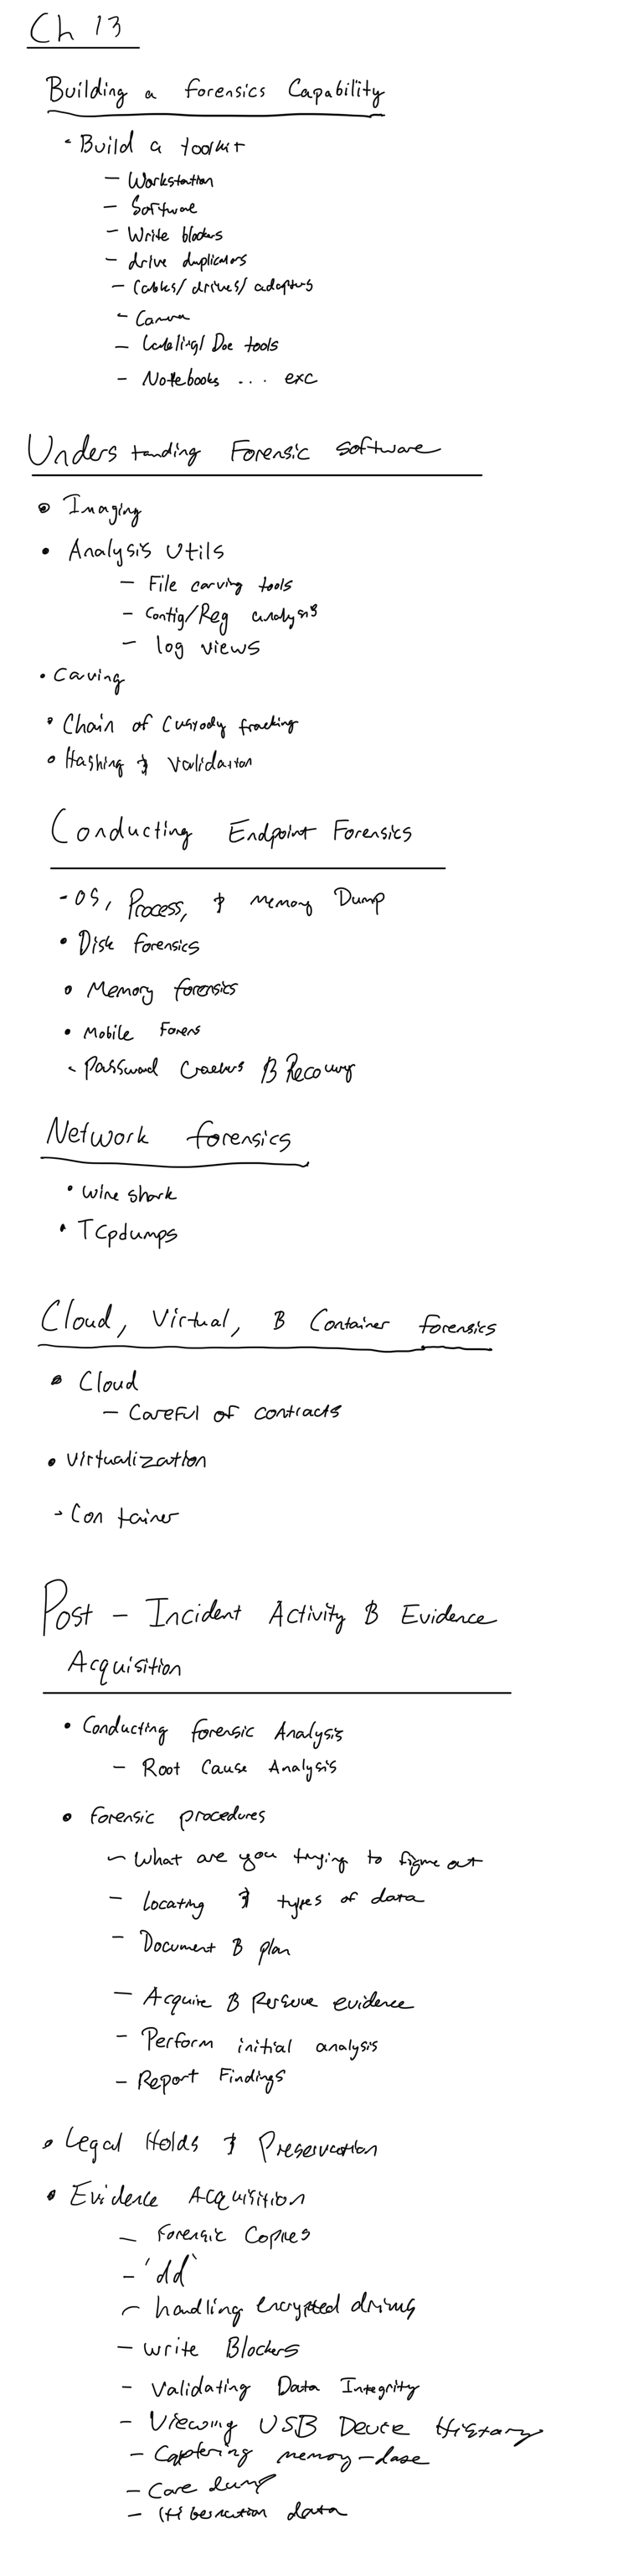 Ch 13
Building a forensics Capability
• Build a toolkit
– Workstation
– Software
– Write blockers
– drive duplicators
– Cables/ drives/ adapters
– Camera
– Labeling/ Doc tools
– Notebooks ... exc
Understanding Forensic software
• Imaging
• Analysis Utils
– File carving tools
– Config/Reg analysis
– log views
• Carving
• Chain of Custody tracking
• Hashing & Validation
Conducting Endpoint Forensics
- OS, Process, & Memory Dump
• Disk forensics
• Memory forensics
• Mobile Forens
• Password Crackers & Recovery
Network forensics
• wire shark
• TCpdumps
Cloud, Virtual, & Container forensics
• Cloud
– Careful of contracts
• Virtualization
- Container
Post – Incident Activity & Evidence
Acquisition
• Conducting forensic Analysis
– Root Cause Analysis
• forensic procedures
– What are you trying to figure out
– Locating & types of data
– Document & plan
– Acquire & Perserve evidence
– Perform initial analysis
– Report Findings
• Legal Holds & Preservation
• Evidence Acquisition
– Forensic Copies
– 'dd`
– handling encrypted drives
– write Blockers
– Validating Data Integrity
– Viewing USB Device History
– Captering memory-
– Core dump
– Hibernation data